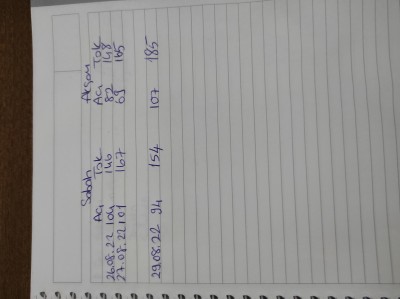 Sabah Akşam
Aç Tok Aç Tok
26.08.22 104 146 82 148
27.08.22 101 167 69 165
29.08.22 94 154 107 185